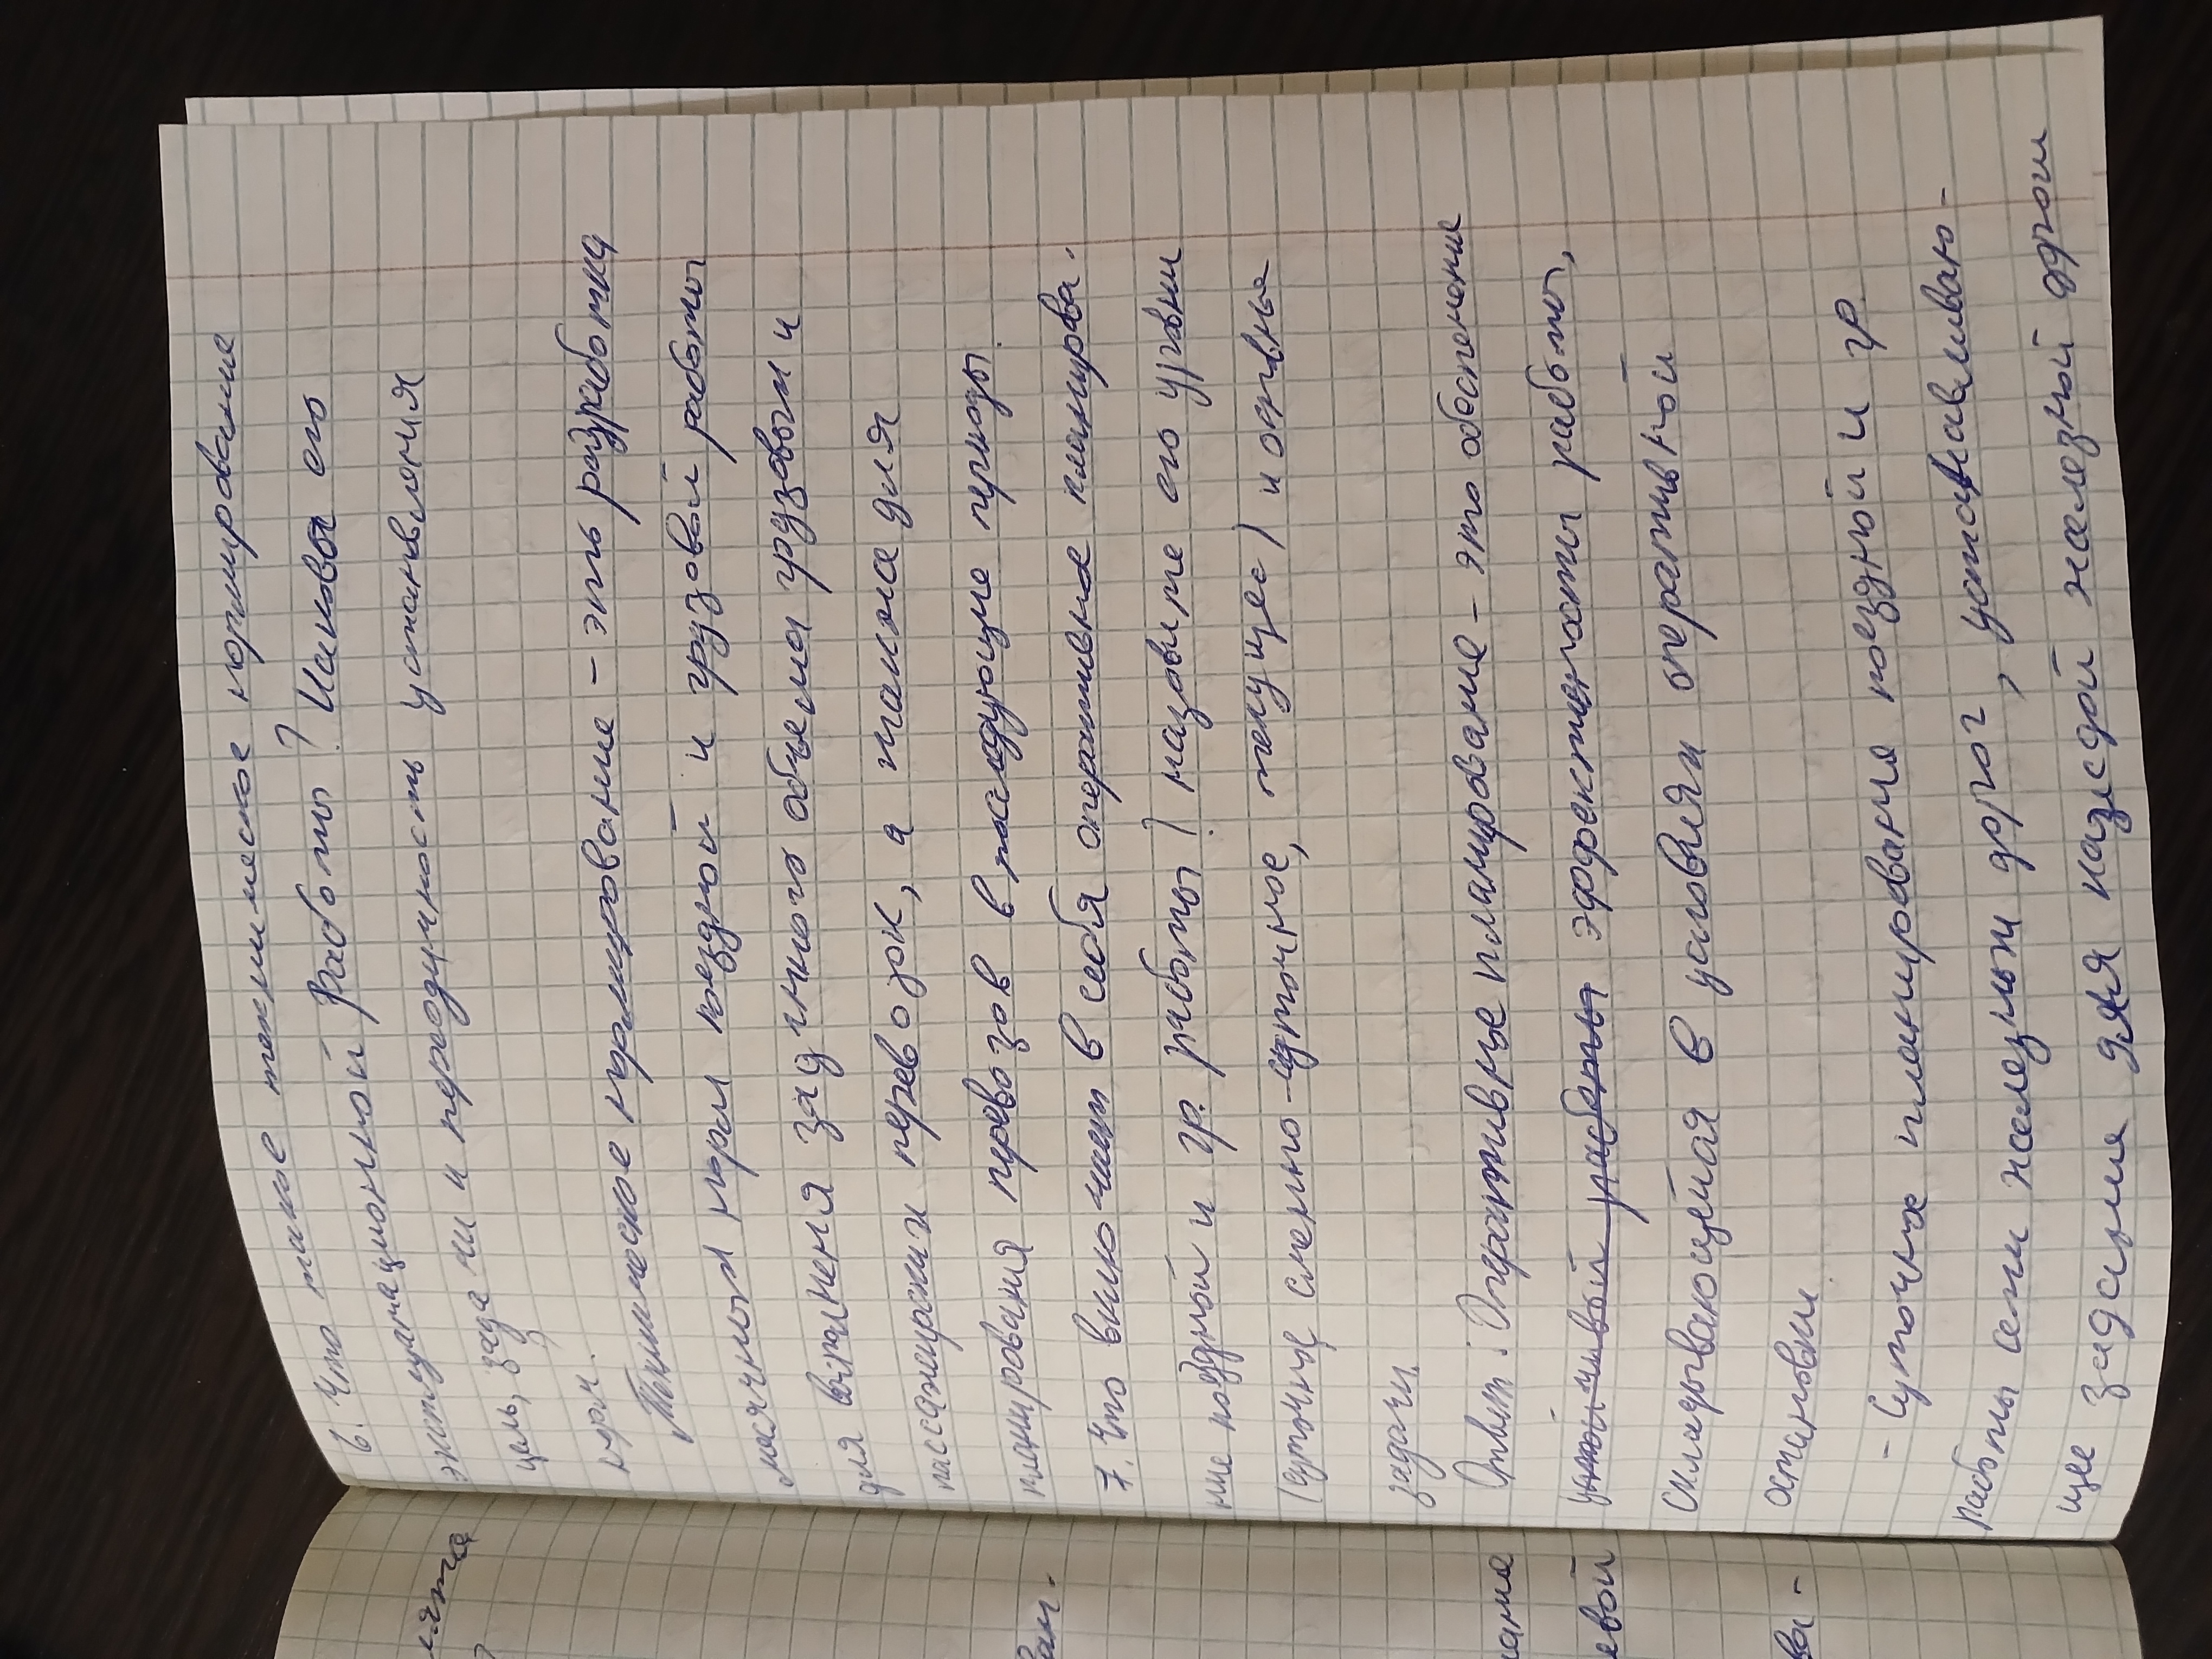 6. Что такое техническое нормирование
эксплуатационной работы? Каковы его
цель, задачи и переодучность установления
норм.
Техническое нормирование - эть разработка
месячным норм поездной и грузовой работы
для выполненя заданного объема грузовым и
пассажирским перевозок, а также для
планирования перевозов в последующие периоды.
7. Что включает в себя оперативное планирова-
ние поездной и гр. работы? назовите его уровни
(суточные сменно-суточное, текущее) и основные
задачи.
Ответ: Оперативнце планирование - это обеспечение
эффективности работы,
складывающейся в условиям оперативной
остановки.
- Суточное планирование поездной и гр.
работы сети железным дорог, устанавливаю-
щее задание для каждой железной дроги
лята
?
ван.
вание
евой
ва-